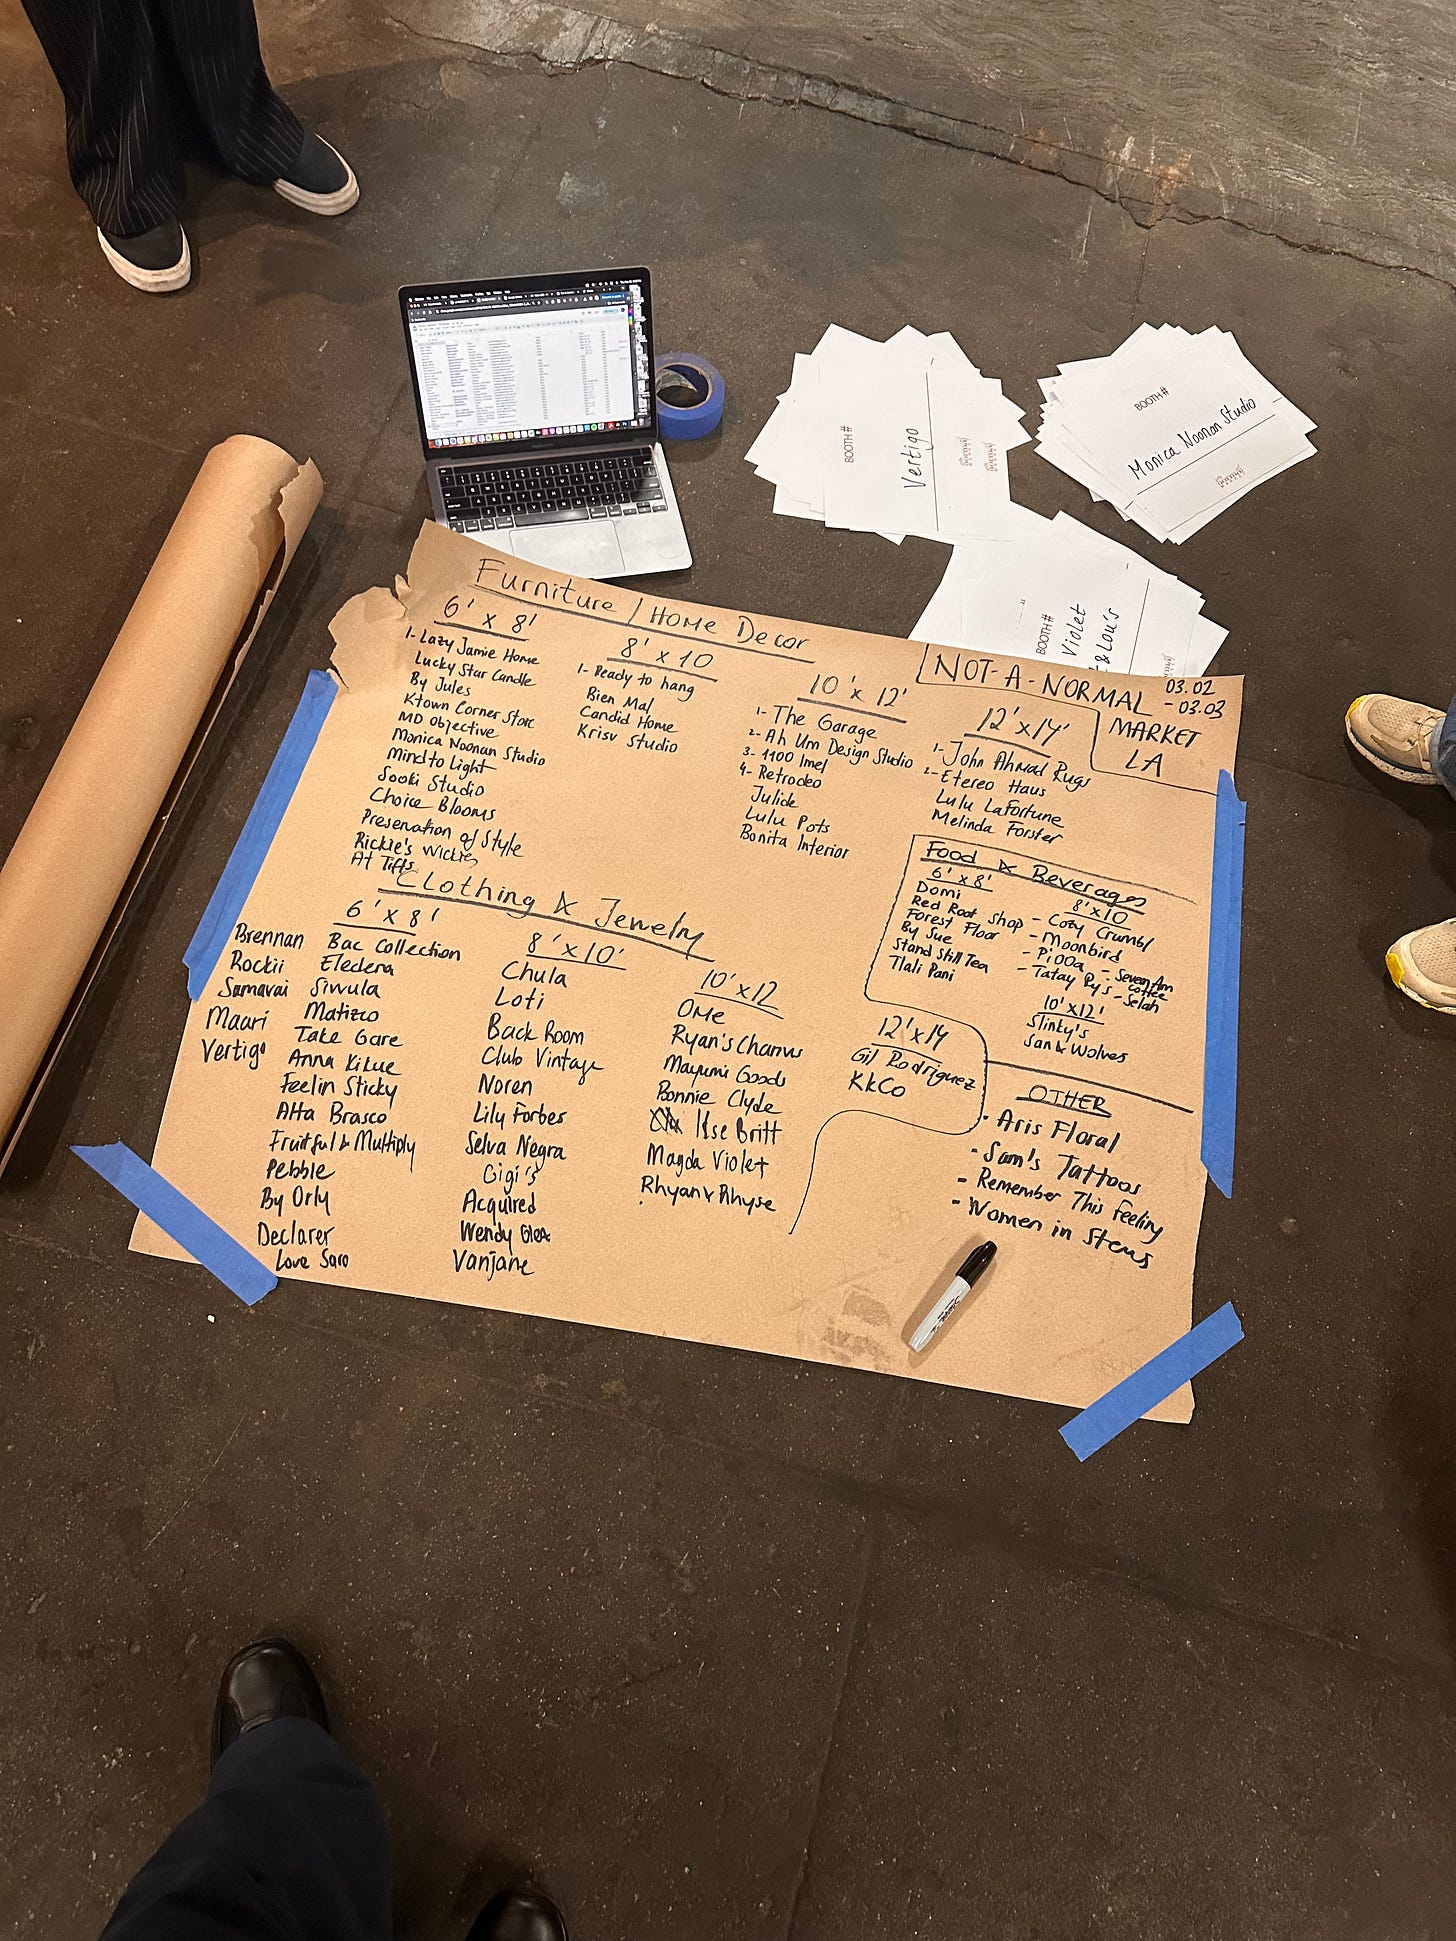 BOOTH#
Vertigo
BOOTH#
Monica Noonan Studio
BOOTH#
Violet
& Lou's
Furniture / Home Decor
6' x 8'
1- Lazy Jamie Home
Lucky Star Candle
By Jules
Ktown Corner Store
MD Objective
Monica Noonan Studio
Mind to Light
Sooki Studio
Choice Blooms
Preservation of Style
Rickie's Wickies
At Tiffs
8' x 10
1- Ready to hang
Bien Mal
Candid Home
Krisv Studio
10' x 12'
1- The Garage
2- Ah Um Design Studio
3- 1100 Imel
4- Retrodeo
Julide
Lulu Pots
Bonita Interior
NOT-A-NORMAL
MARKET
LA
03.02
- 03.03
12' x 14'
1- John Ahmad Rugs
2- Etereo Haus
Lulu LaFortune
Melinda Forster
Food & Beverages
6' x 8'
Domi
Red Root Shop
Forest Floor
By Sue
Stand Still Tea
Tlali Pani
8' x 10
- Cozy Crumbl
- Moonbird
- Pi00a
- Seven Am
Coffee
- Tatay Ry's
- Selah
10' x 12'
Slinky's
San & Wolves
Clothing & Jewelry
Brennan
Rockii
Samavai
Maari
Vertigo
6' x 8'
Bac Collection
Eledera
Sivvula
Matizzo
Take Care
Anna Kikue
Feelin Sticky
Alta Brasco
Fruitful & Multiply
Pebble
By Orly
Declarer
Love Saro
8' x 10'
Chula
Loti
Back Room
Club Vintage
Noren
Lily Forbes
Selva Negra
Gigi's
Acquired
Wendy Glez
Vanjane
10' x 12
OMe
Ryan's Charms
Mayumi Goods
Bonnie Clyde
Ilse Britt
Magda Violet
Rhyan & Rhyse
12' x 14
Gil Rodriguez
KkCo
OTHER
- Aris Floral
- Sam's Tattoos
- Remember This Feeling
- Women in Stems
Sharpie